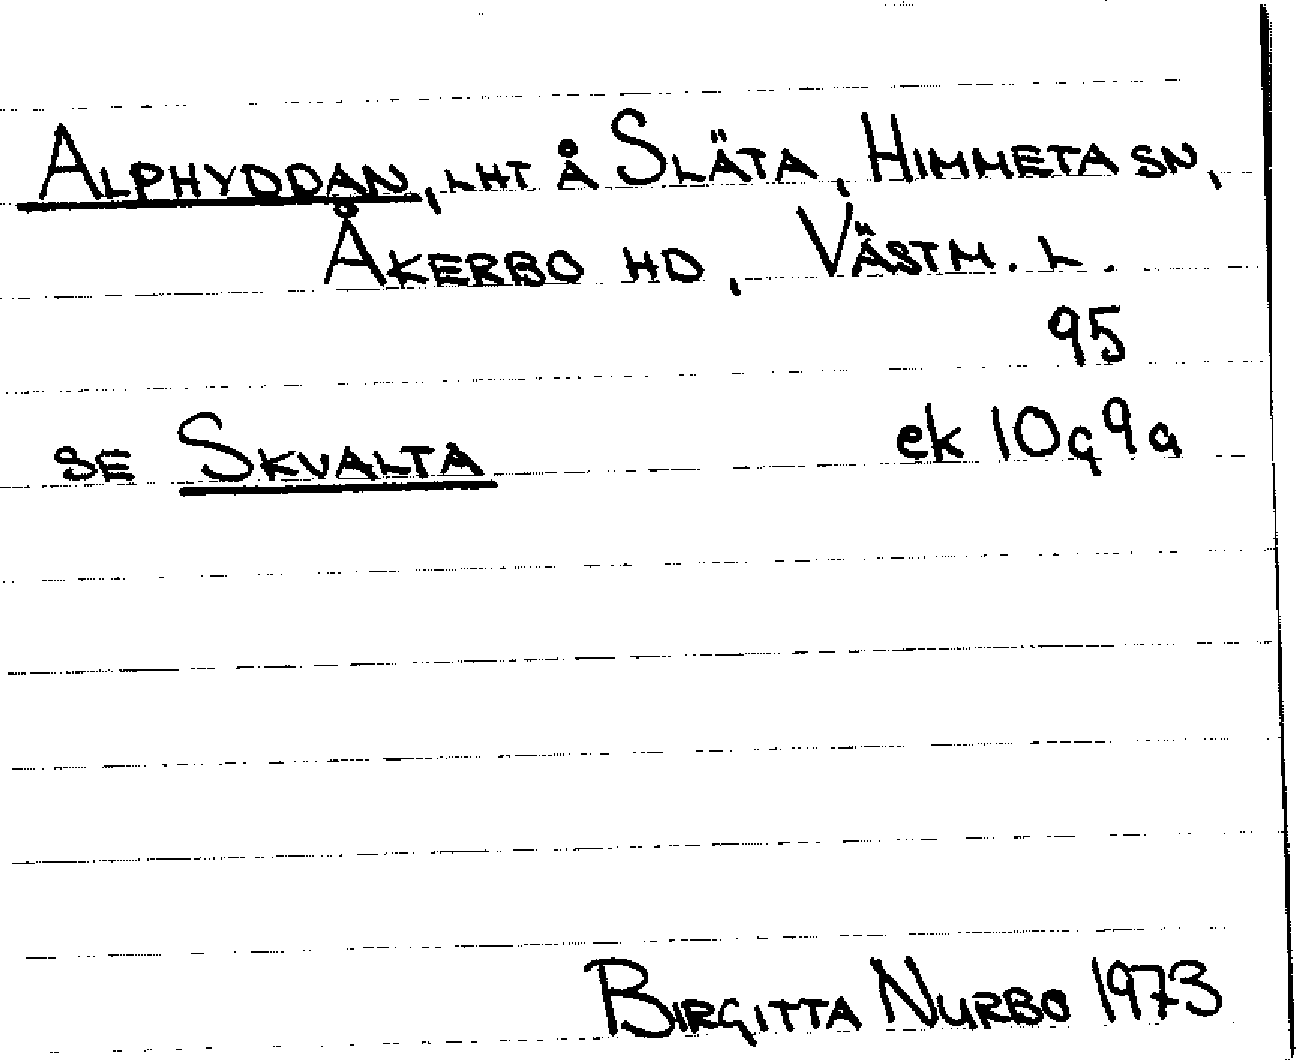 ALPHYDDAN, LHT Å SLÄTA, HIMMETA SN,
ÅKERBO HD, VÄSTM. L.
95
SE SKVALTA ek 10g9a
BIRGITTA NURBO 1973